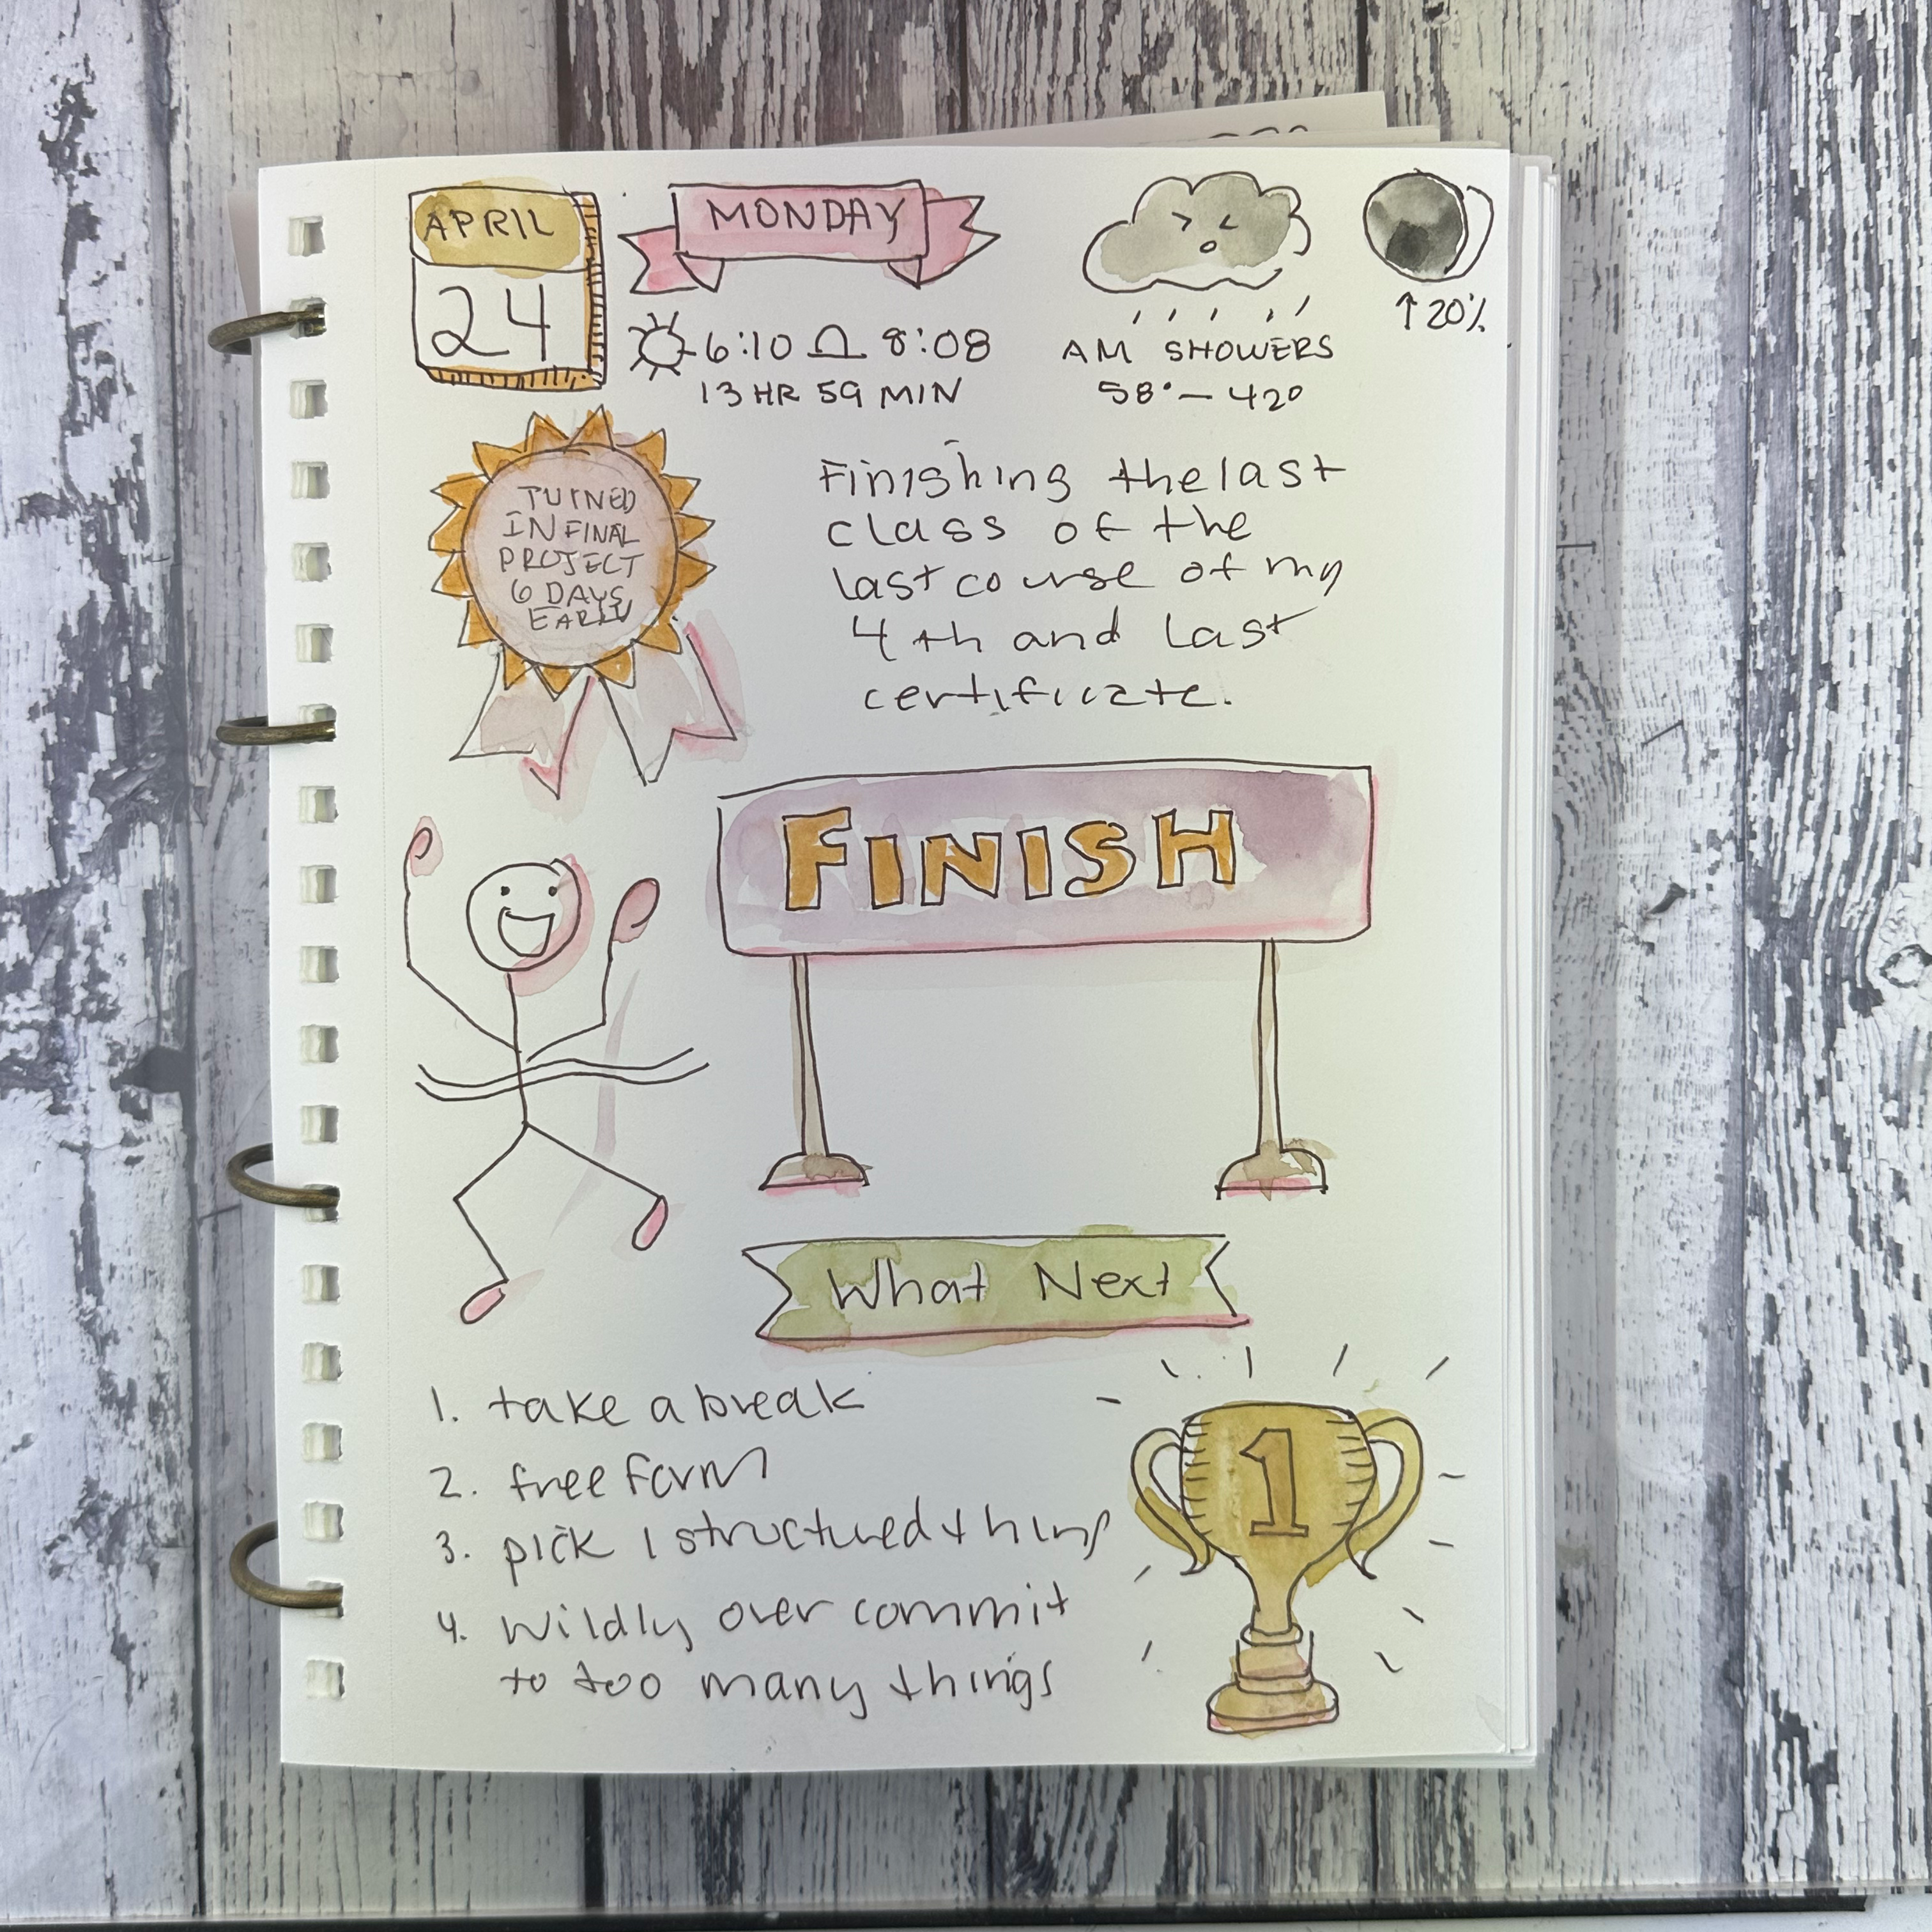 APRIL
24
MONDAY
6:10 8:08
13 HR 59 MIN
AM SHOWERS
58° – 42°
↑ 20%
TURNED
IN FINAL
PROJECT
6 DAYS
EARLY
Finishing the last
class of the
last course of my
4th and last
certificate.
FINISH
What Next
1. take a break
2. free form
3. pick 1 structured thing
4. wildly over commit
to too many things
1